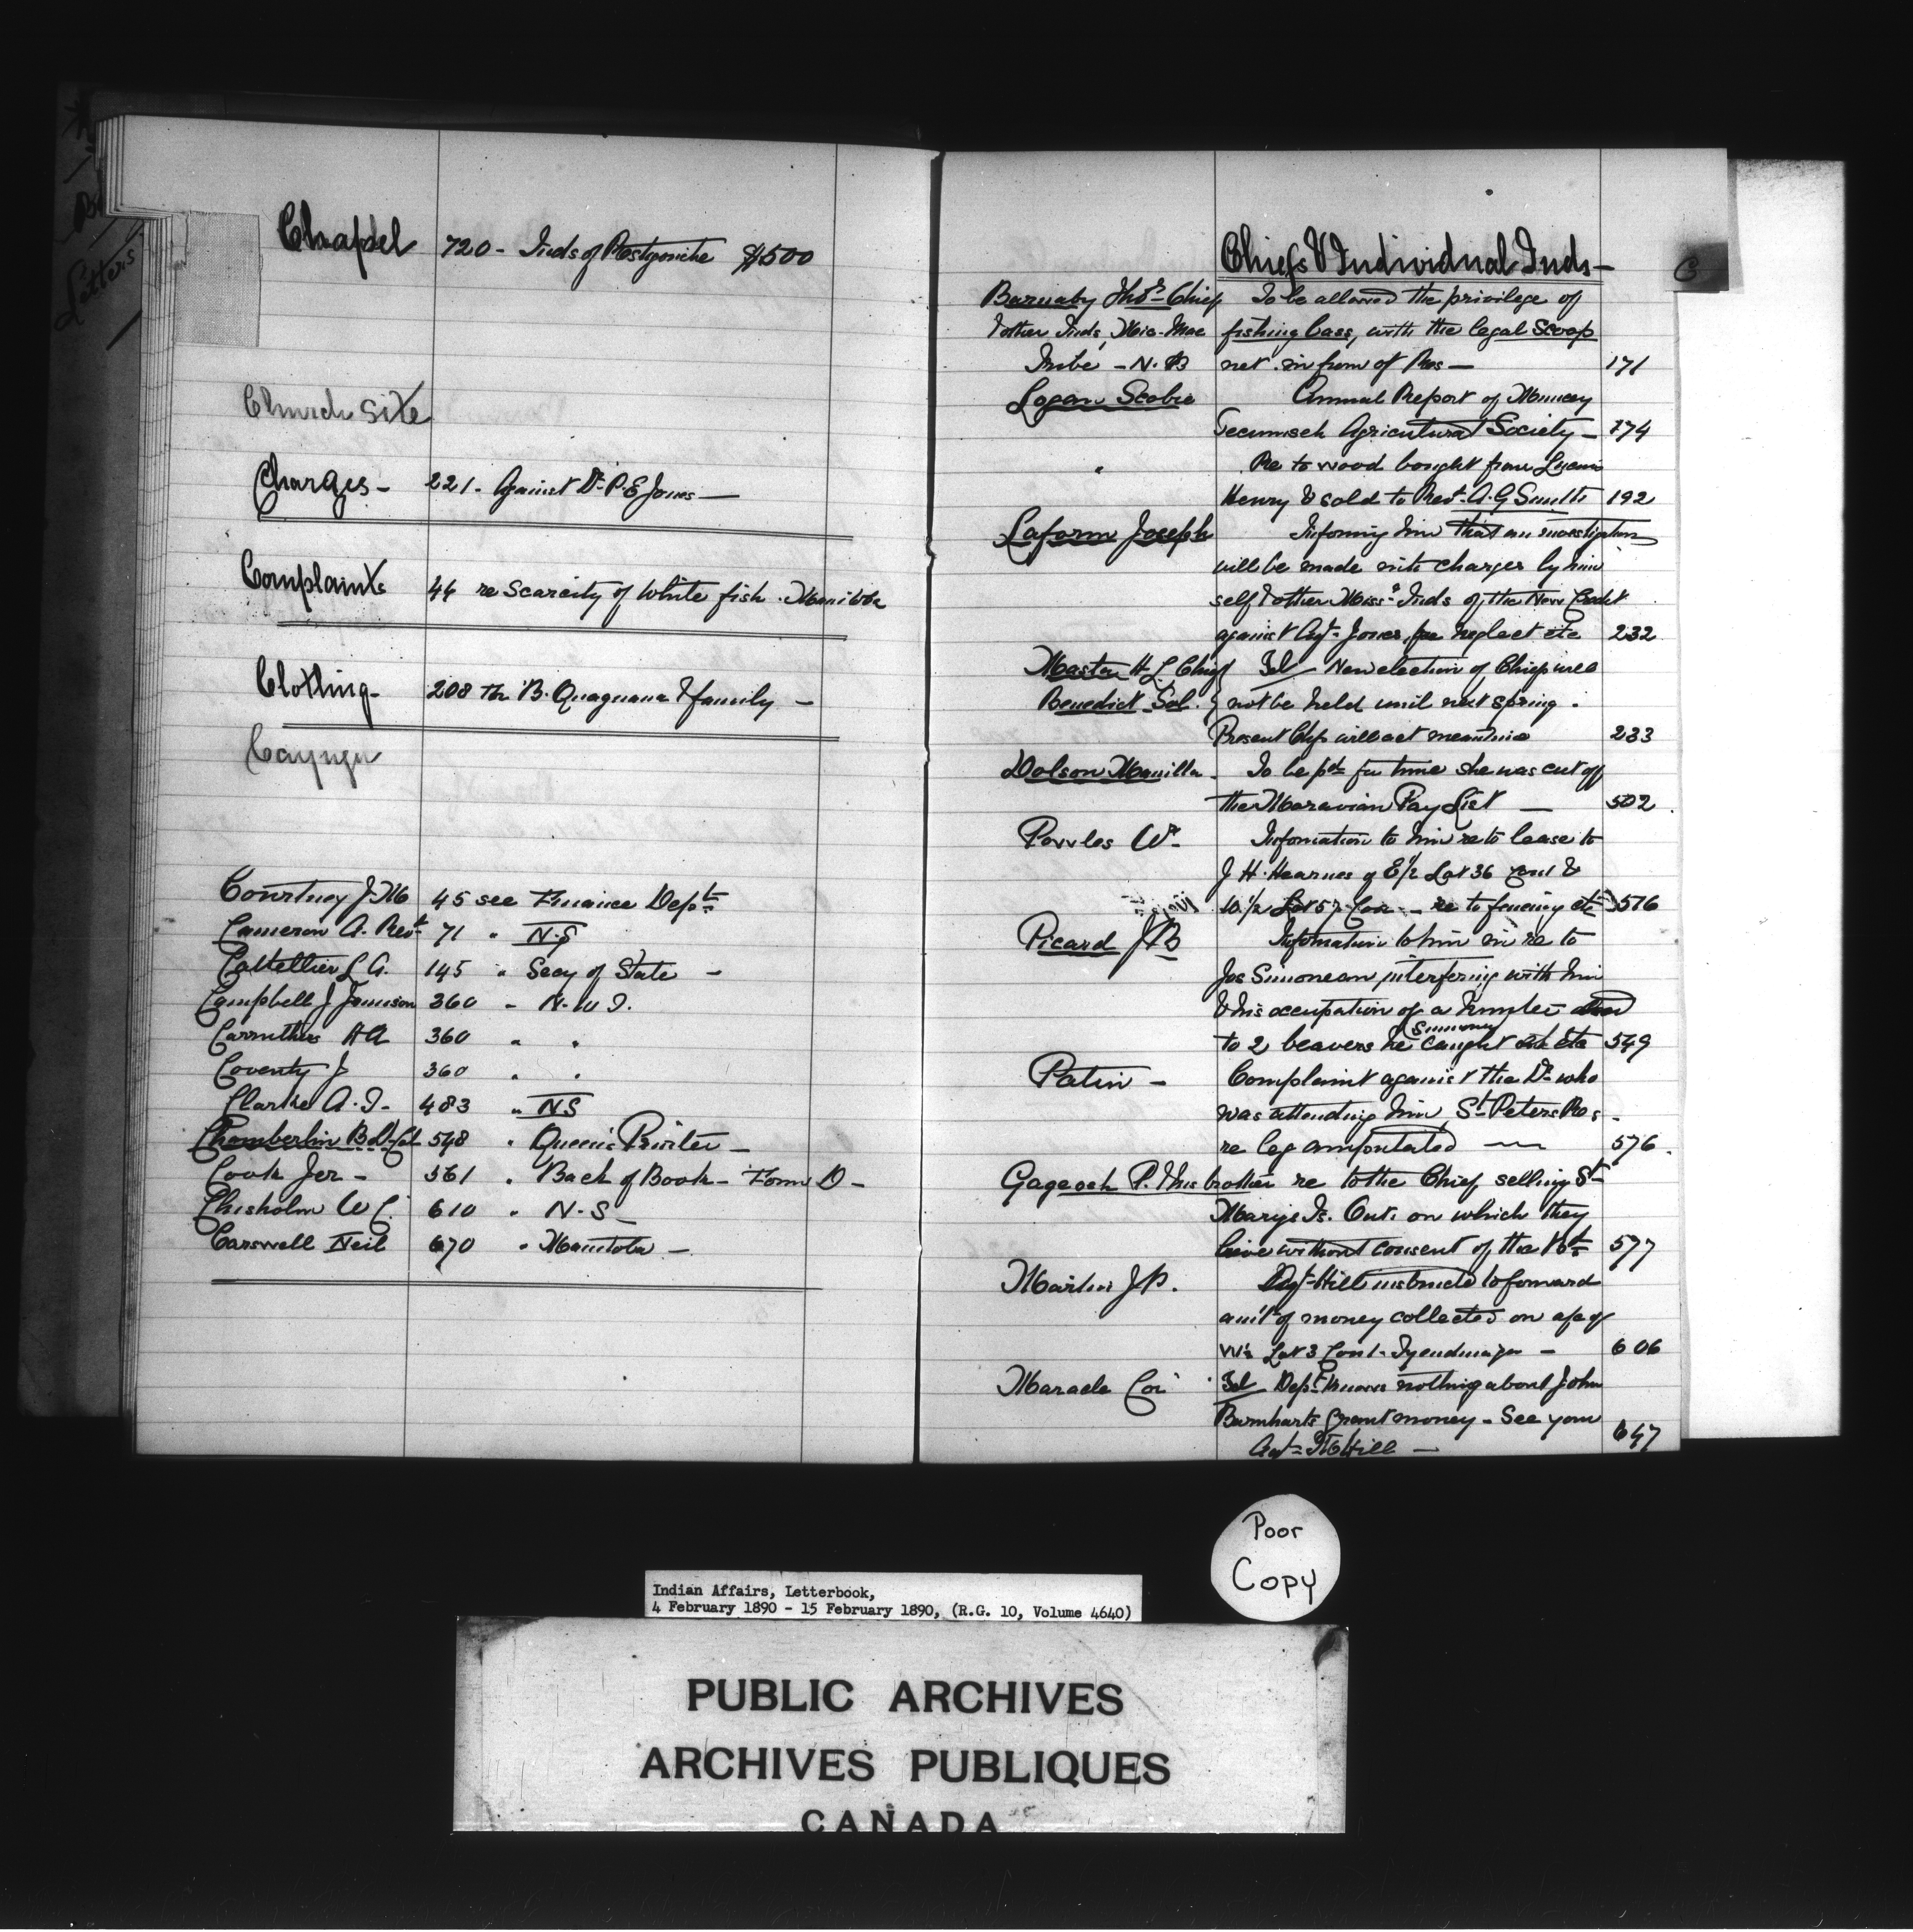 Chapel 720 - Inds of Restigouche $500
Church Site
Charges - 221 - Against Dr. P. E. Jones -
Complaints 46 re Scarcity of White fish. Manitoba
Clothing - 208 th B. Quaquana & family -
Cayuga
Courtney J. M 45 see Finance Dept
Cameron A. Revd 71 " N.S
Catellier L. A. 145 " Secy of State -
Campbell J Jamison 360 " N. W T.
Carruthers HA 360 " "
Coventy J 360 " "
Clarke A. T. - 483 " NS
Chamberlin B. Lt Col 548 " Queen's Printer -
Cook Jer - 561 " Back of Book - Form D -
Chisholm W C. 610 " N. S -
Carswell Neil 670 " Manitoba -
Letters
C
Chiefs & Individual Inds -
Barnaby Thos Chief To be allowed the privilege of
& other Inds, Mic-Mac fishing bass, with the legal scoop
Tribe - N. B net in front of Res - 171
Logan Scobie Annual Report of Muncey
Tecumseh Agricultural Society - 174
" Re to wood bought from
Henry & sold to Revd. A. G Smith 192
Laform Joseph Informing him that an investigation
will be made into charges by him
self & other Miss. Inds of the New Credit
against Agt. Jones for neglect etc 232
Maston H L Chief Tel - New election of Chief will
Benedict Sol. } not be held until next spring.
Present Chfs will act meantime 233
Dolson Manilla. To be pd for time she was cut off
the Moravian Pay List - 502
Powles Wm Information to him re to lease to
J H. Hearnes of E 1/2 Lot 36 Con 1 &
W. 1/2 Lot 37 Con - re to fencing etc 576
Picard J B Information to him in re to
Jos Simonean interfering with him
& his occupation of a hunter
Simoney
to 2 beavers he caught etc 549
Patin - Complaint against the Dr who
was attending him, St Peters Res -
re leg amputated - 576.
Gageosh P. & his brother re to the Chief selling St
Marys Is. Ont. on which they
live without consent of the 577
Martin J P. Agt Hill instructed to forward
amt of money collected on a/c of
W 1/2 Lot 3 Con 1. Tyendinaga - 606
Maracle Cor Tel Dept knows nothing about John
Barnharts grant money - See your
Agt Hill - 647
Poor
Copy
Indian Affairs, Letterbook,
4 February 1890 - 15 February 1890, (R.G. 10, Volume 4640)
PUBLIC ARCHIVES
ARCHIVES PUBLIQUES
CANADA